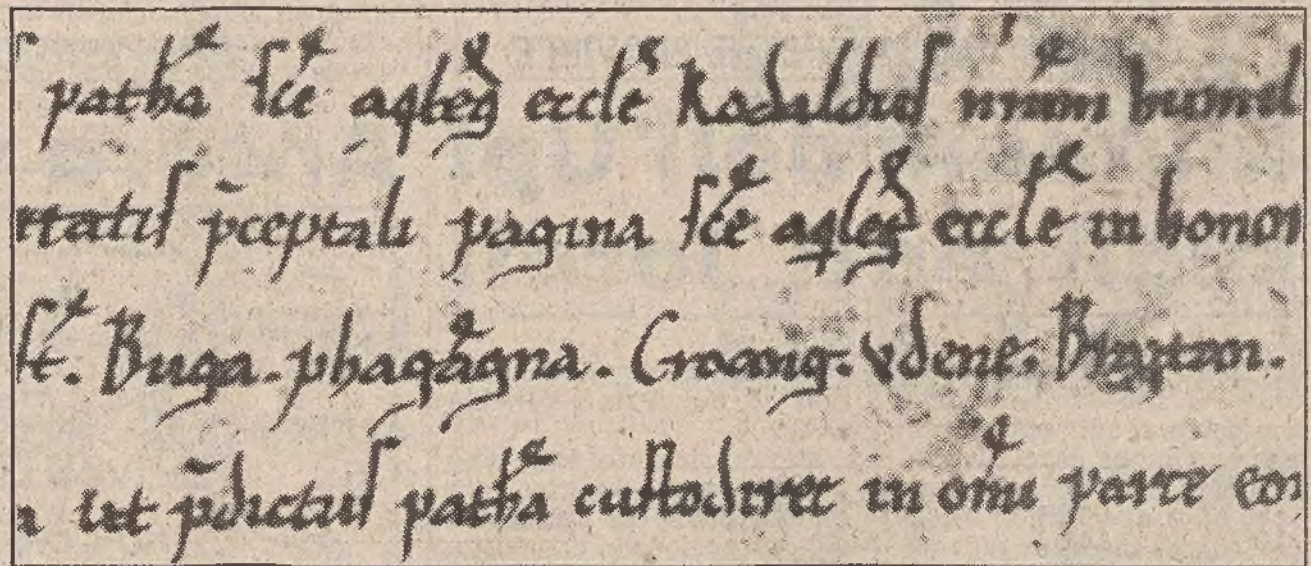 patħa sc̄e aqleg̃ eccle Rodaldus nr̃am humil
itatis p̄ceptali pagina sc̄e aqleg̃ eccle in honor
st. Buga. phagagna. Groang. Vdene. Braitan.
ut p̄dictus patħa custodiret in om̃i parte eor